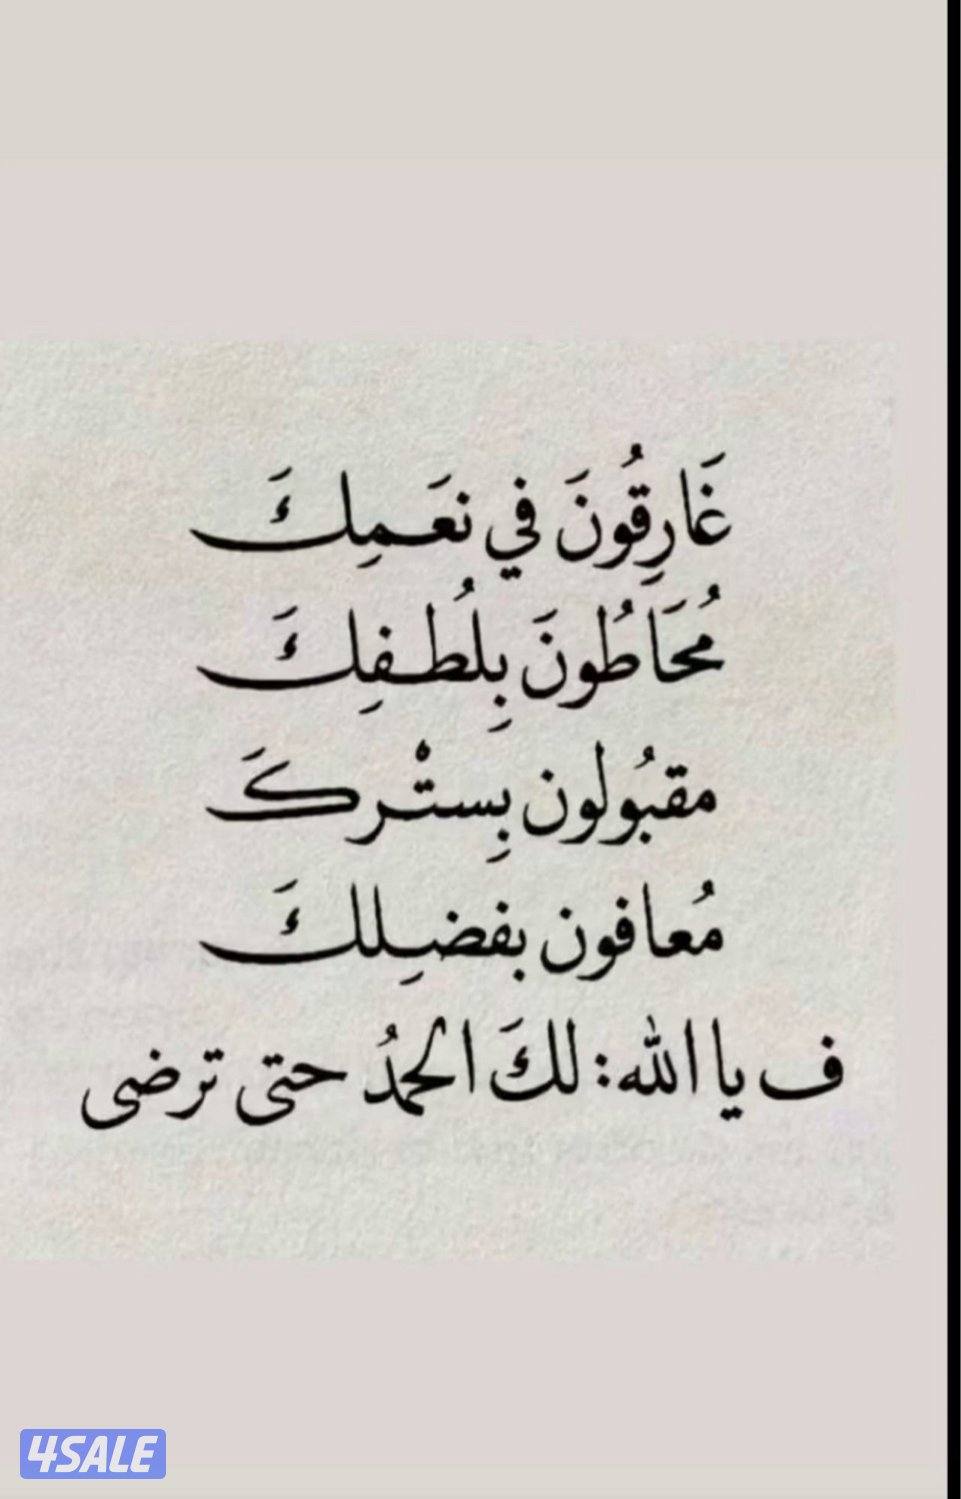 غَارِقُونَ في نعَمِكَ
مُحَاطُونَ بِلُطفِكَ
مقبُولون بِستْركَ
مُعافون بفضلِكَ
ف يا الله: لكَ الحمدُ حتى ترضى
4SALE